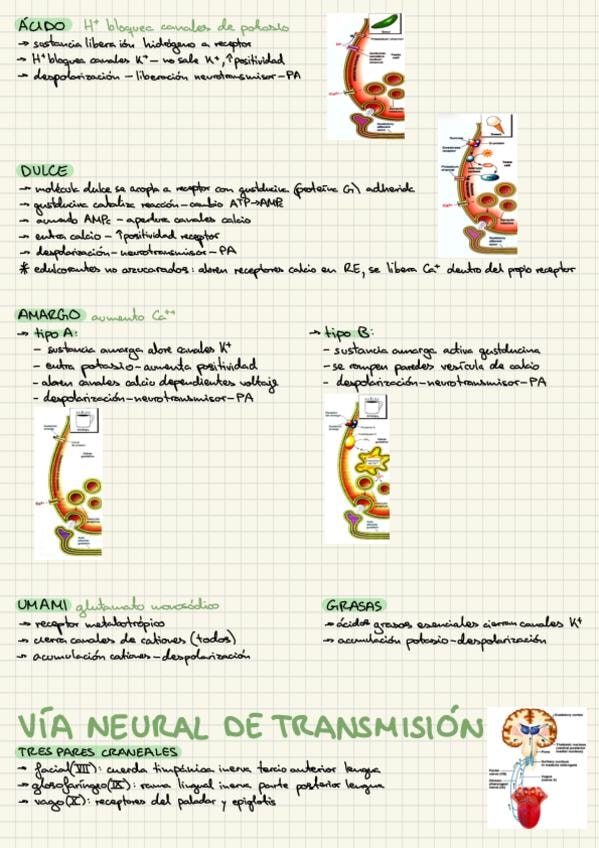 ÁCIDO H⁺ bloquea canales de potasio
→ sustancia libera ión hidrógeno a receptor
→ H⁺ bloquea canales K⁺ – no sale K⁺, ↑ positividad
→ despolarización – liberación neurotransmisor – PA
DULCE
→ molécula dulce se acopla a receptor con gustducina (proteína G) adherida
→ gustducina cataliza reacción – cambio ATP → AMPc
→ aumento AMPc – apertura canales calcio
→ entra calcio – ↑ positividad receptor
→ despolarización – neurotransmisor – PA
* edulcorantes no azucarados: abren receptores calcio en RE, se libera Ca⁺ dentro del propio receptor
AMARGO aumento Ca⁺⁺
→ tipo A:
- sustancia amarga abre canales K⁺
- entra potasio – aumenta positividad
- abren canales calcio dependientes voltaje
- despolarización – neurotransmisor – PA
→ tipo B:
- sustancia amarga activa gustducina
- se rompen paredes vesícula de calcio
- despolarización – neurotransmisor – PA
UMAMI glutamato monosódico
→ receptor metabotrópico
→ cierra canales de cationes (todos)
→ acumulación cationes – despolarización
GRASAS
→ ácidos grasos esenciales cierran canales K⁺
→ acumulación potasio – despolarización
VÍA NEURAL DE TRANSMISIÓN
TRES PARES CRANEALES
→ facial (VII): cuerda timpánica inerva tercio anterior lengua
→ glosofaríngeo (IX): rama lingual inerva parte posterior lengua
→ vago (X): receptores del paladar y epiglotis